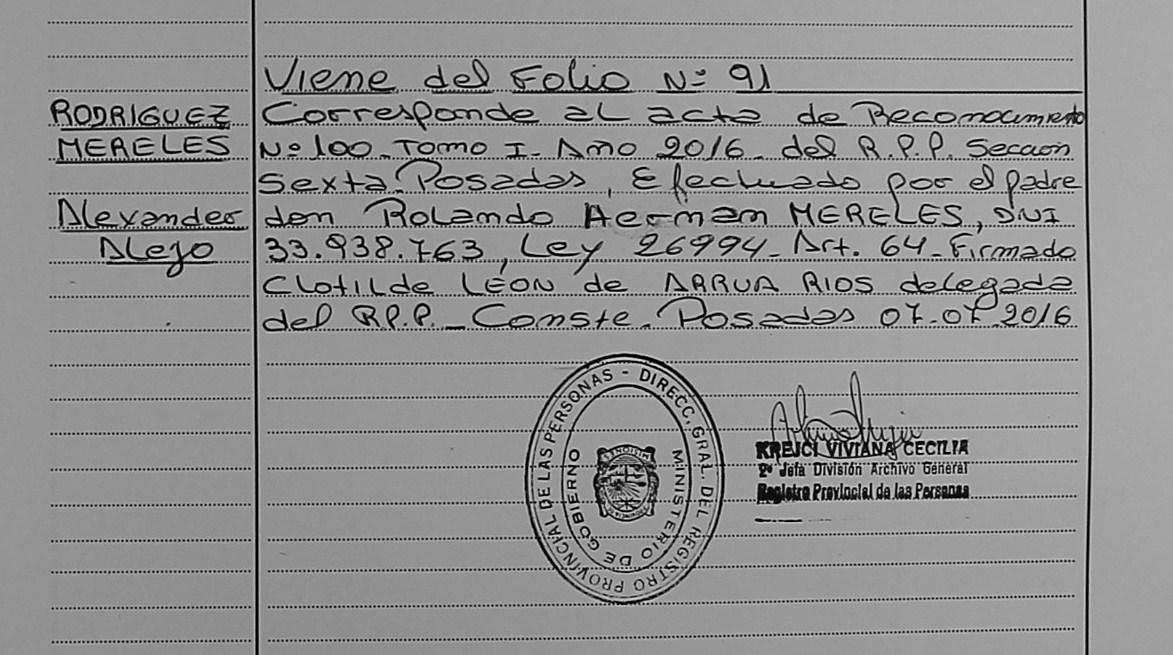 Viene del Folio Nº 91
RODRIGUEZ
MERELES
Alexander
Alejo
Corresponde al acta de Reconocimiento
Nº 100. Tomo I. Año 2016. del R.P.P. Sección
Sexta. Posadas, Efectuado por el padre
don Rolando Hernan MERELES, DNI
33.938.763, Ley 26994. Art. 64. Firmado
Clotilde LEON de ARRUA RIOS delegada
del R.P.P. Conste. Posadas 07.07.2016
DIRECC. GRAL. DEL REGISTRO PROVINCIAL DE LAS PERSONAS -
MINISTERIO DE GOBIERNO
KREJCI VIVIANA CECILIA
2º Jefa División Archivo General
Registro Provincial de las Personas